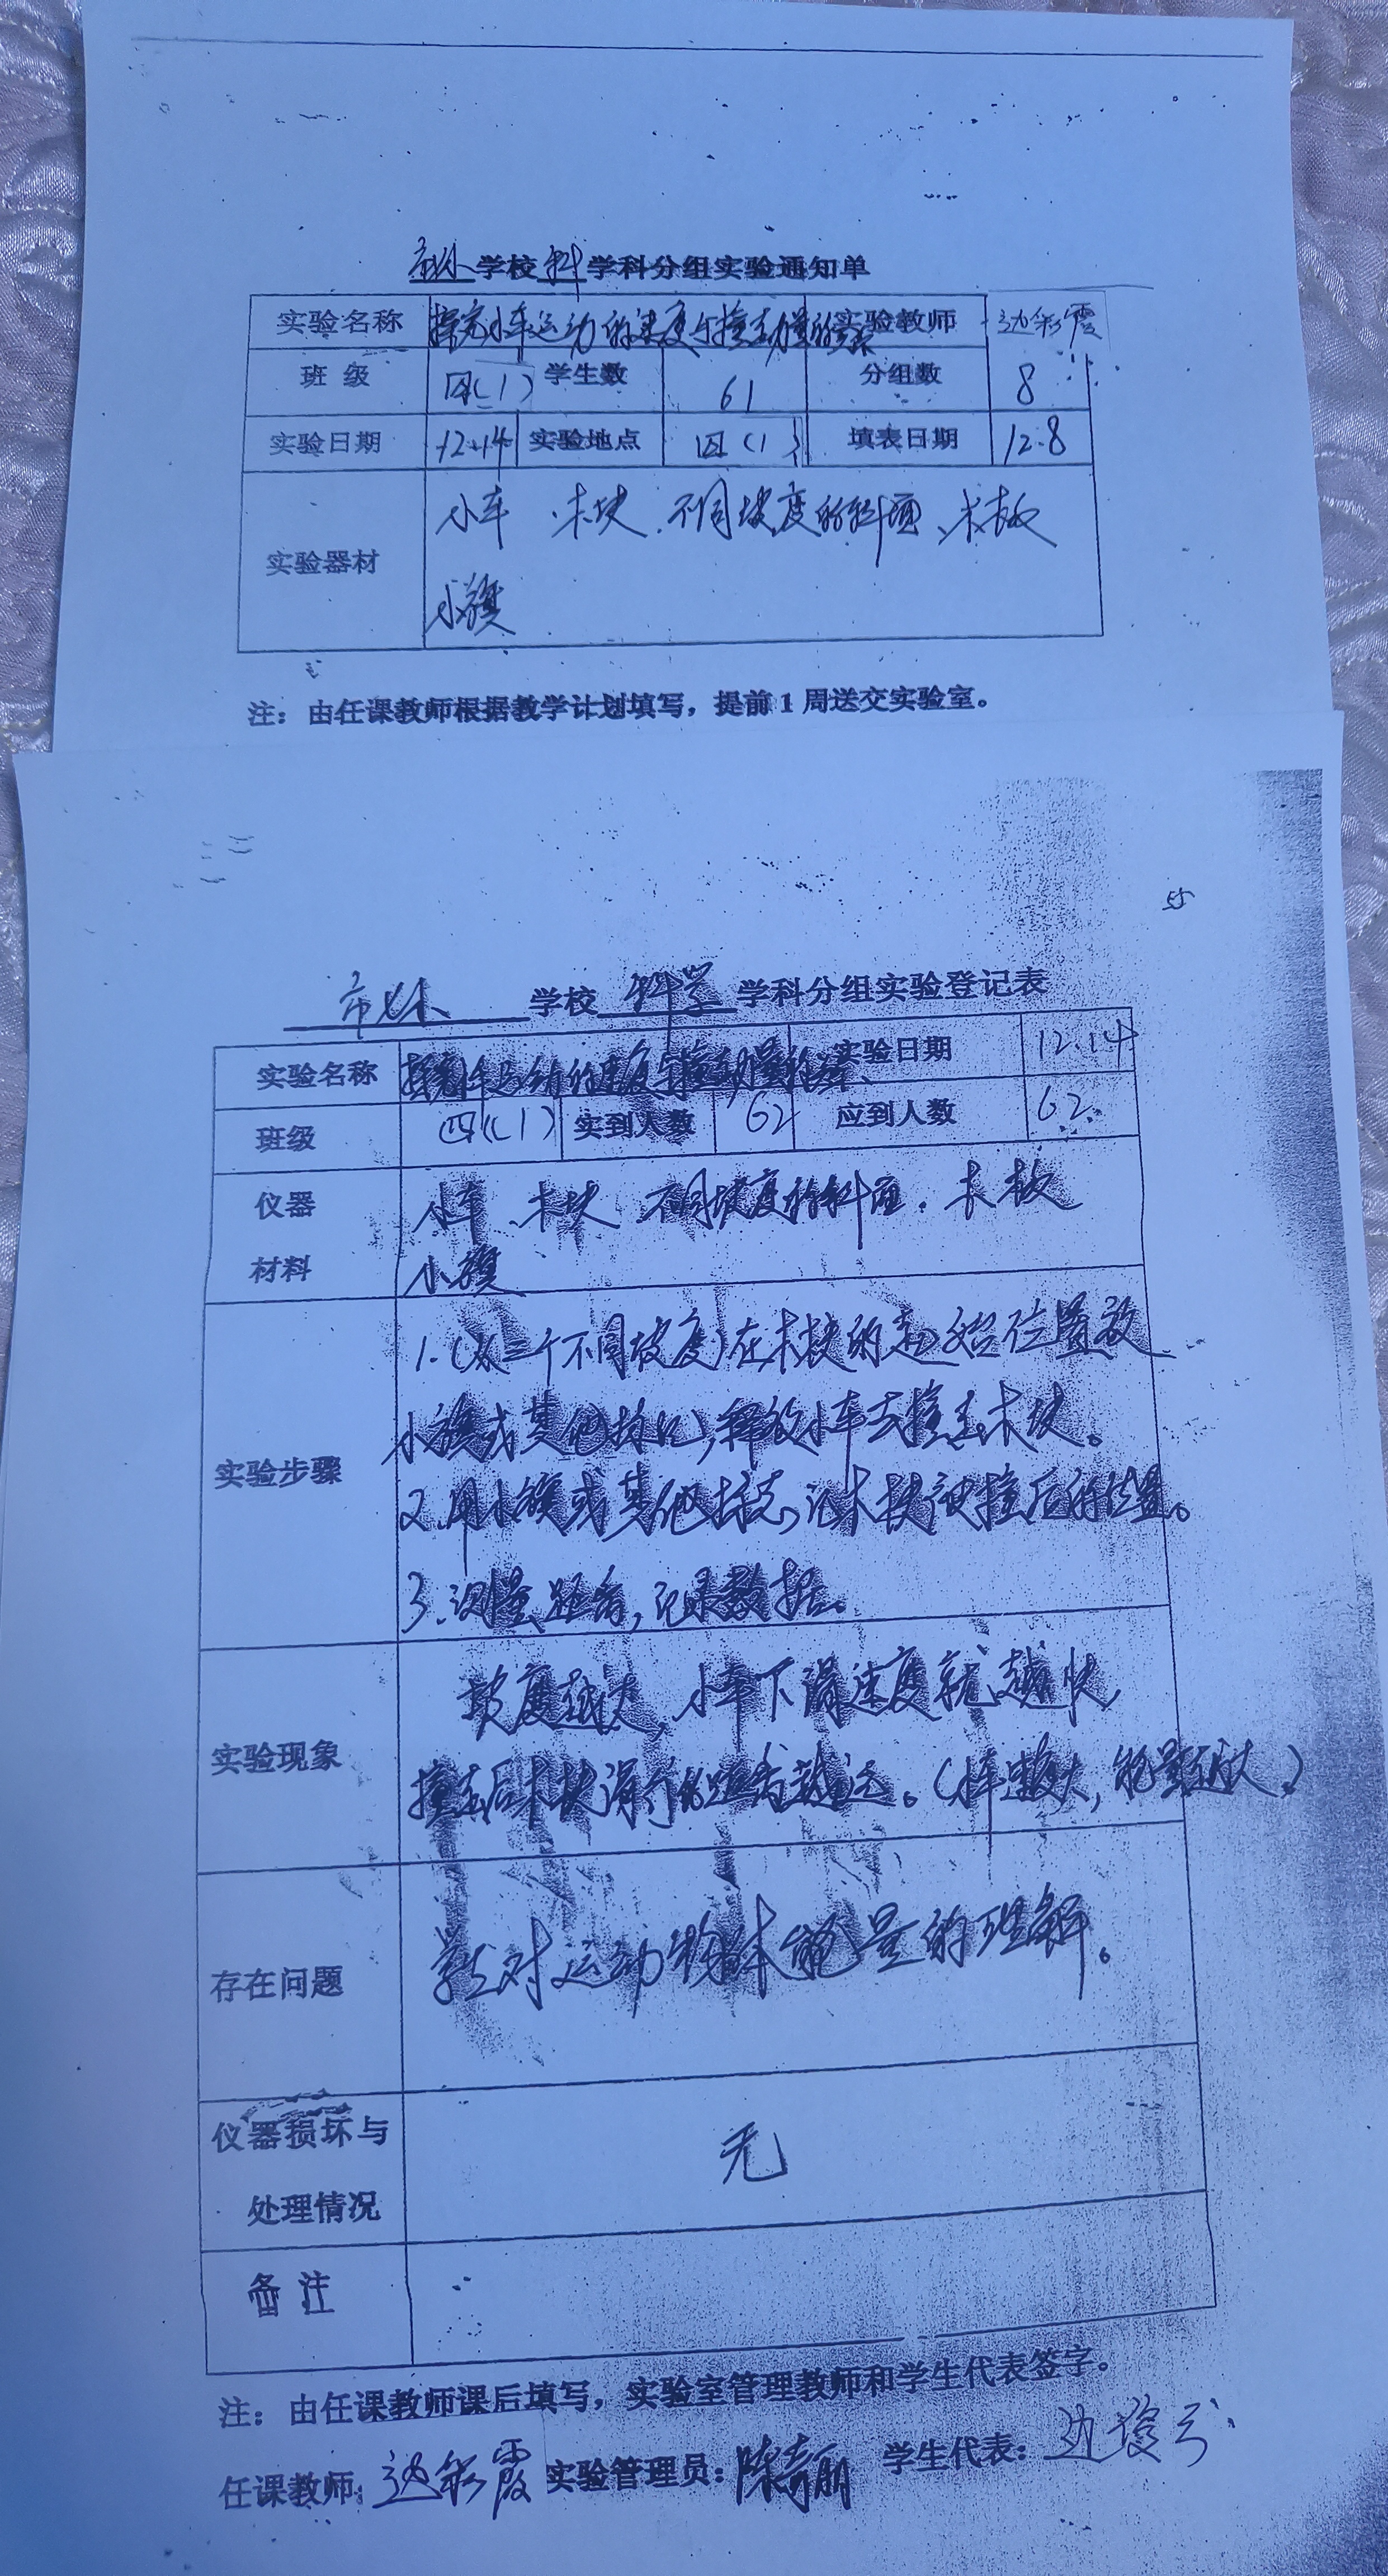 学校 科 学科分组实验通知单
实验名称 探究小车运动的速度与撞击力量的关系 实验教师 边彩霞
班 级 四(1) 学生数 61 分组数 8
实验日期 12.14 实验地点 四(1) 填表日期 12.8
实验器材 小车 木块 不同坡度的斜面 木板
小旗
注：由任课教师根据教学计划填写，提前1周送交实验室。
55
学校 科学 学科分组实验登记表
实验名称 探究小车运动的速度与撞击力量的关系 实验日期 12.14
班级 四(1) 实到人数 62 应到人数 62
仪器 小车 木块 不同坡度的斜面 木板
材料 小旗
1.(从三个不同坡度)在木块的起始位置放
小旗或其他标记,释放小车去撞击木块。
实验步骤
2.用小旗或其他标志,记木块被撞后的位置。
3.测量距离,记录数据。
坡度越大,小车下滑速度就越快,
实验现象
撞击后木块滑行的距离越远。(小车速度大,能量越大)
存在问题 学生对运动物体能量的理解。
仪器损坏与
无
处理情况
备 注
注：由任课教师课后填写，实验室管理教师和学生代表签字。
任课教师：边彩霞 实验管理员：陈青丽 学生代表：边